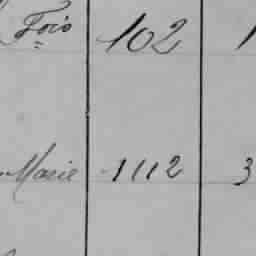 Fois 102 1
Marie 1112 3